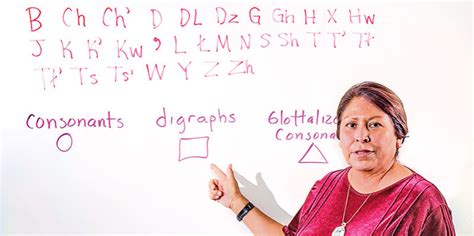 B Ch Ch' D DL Dz G Gh H X Hw
J K K' Kw ' L Ł M N S Sh T T' Tł
Tł' Ts Ts' W Y Z Zh
consonants digraphs Glottalize
Consona